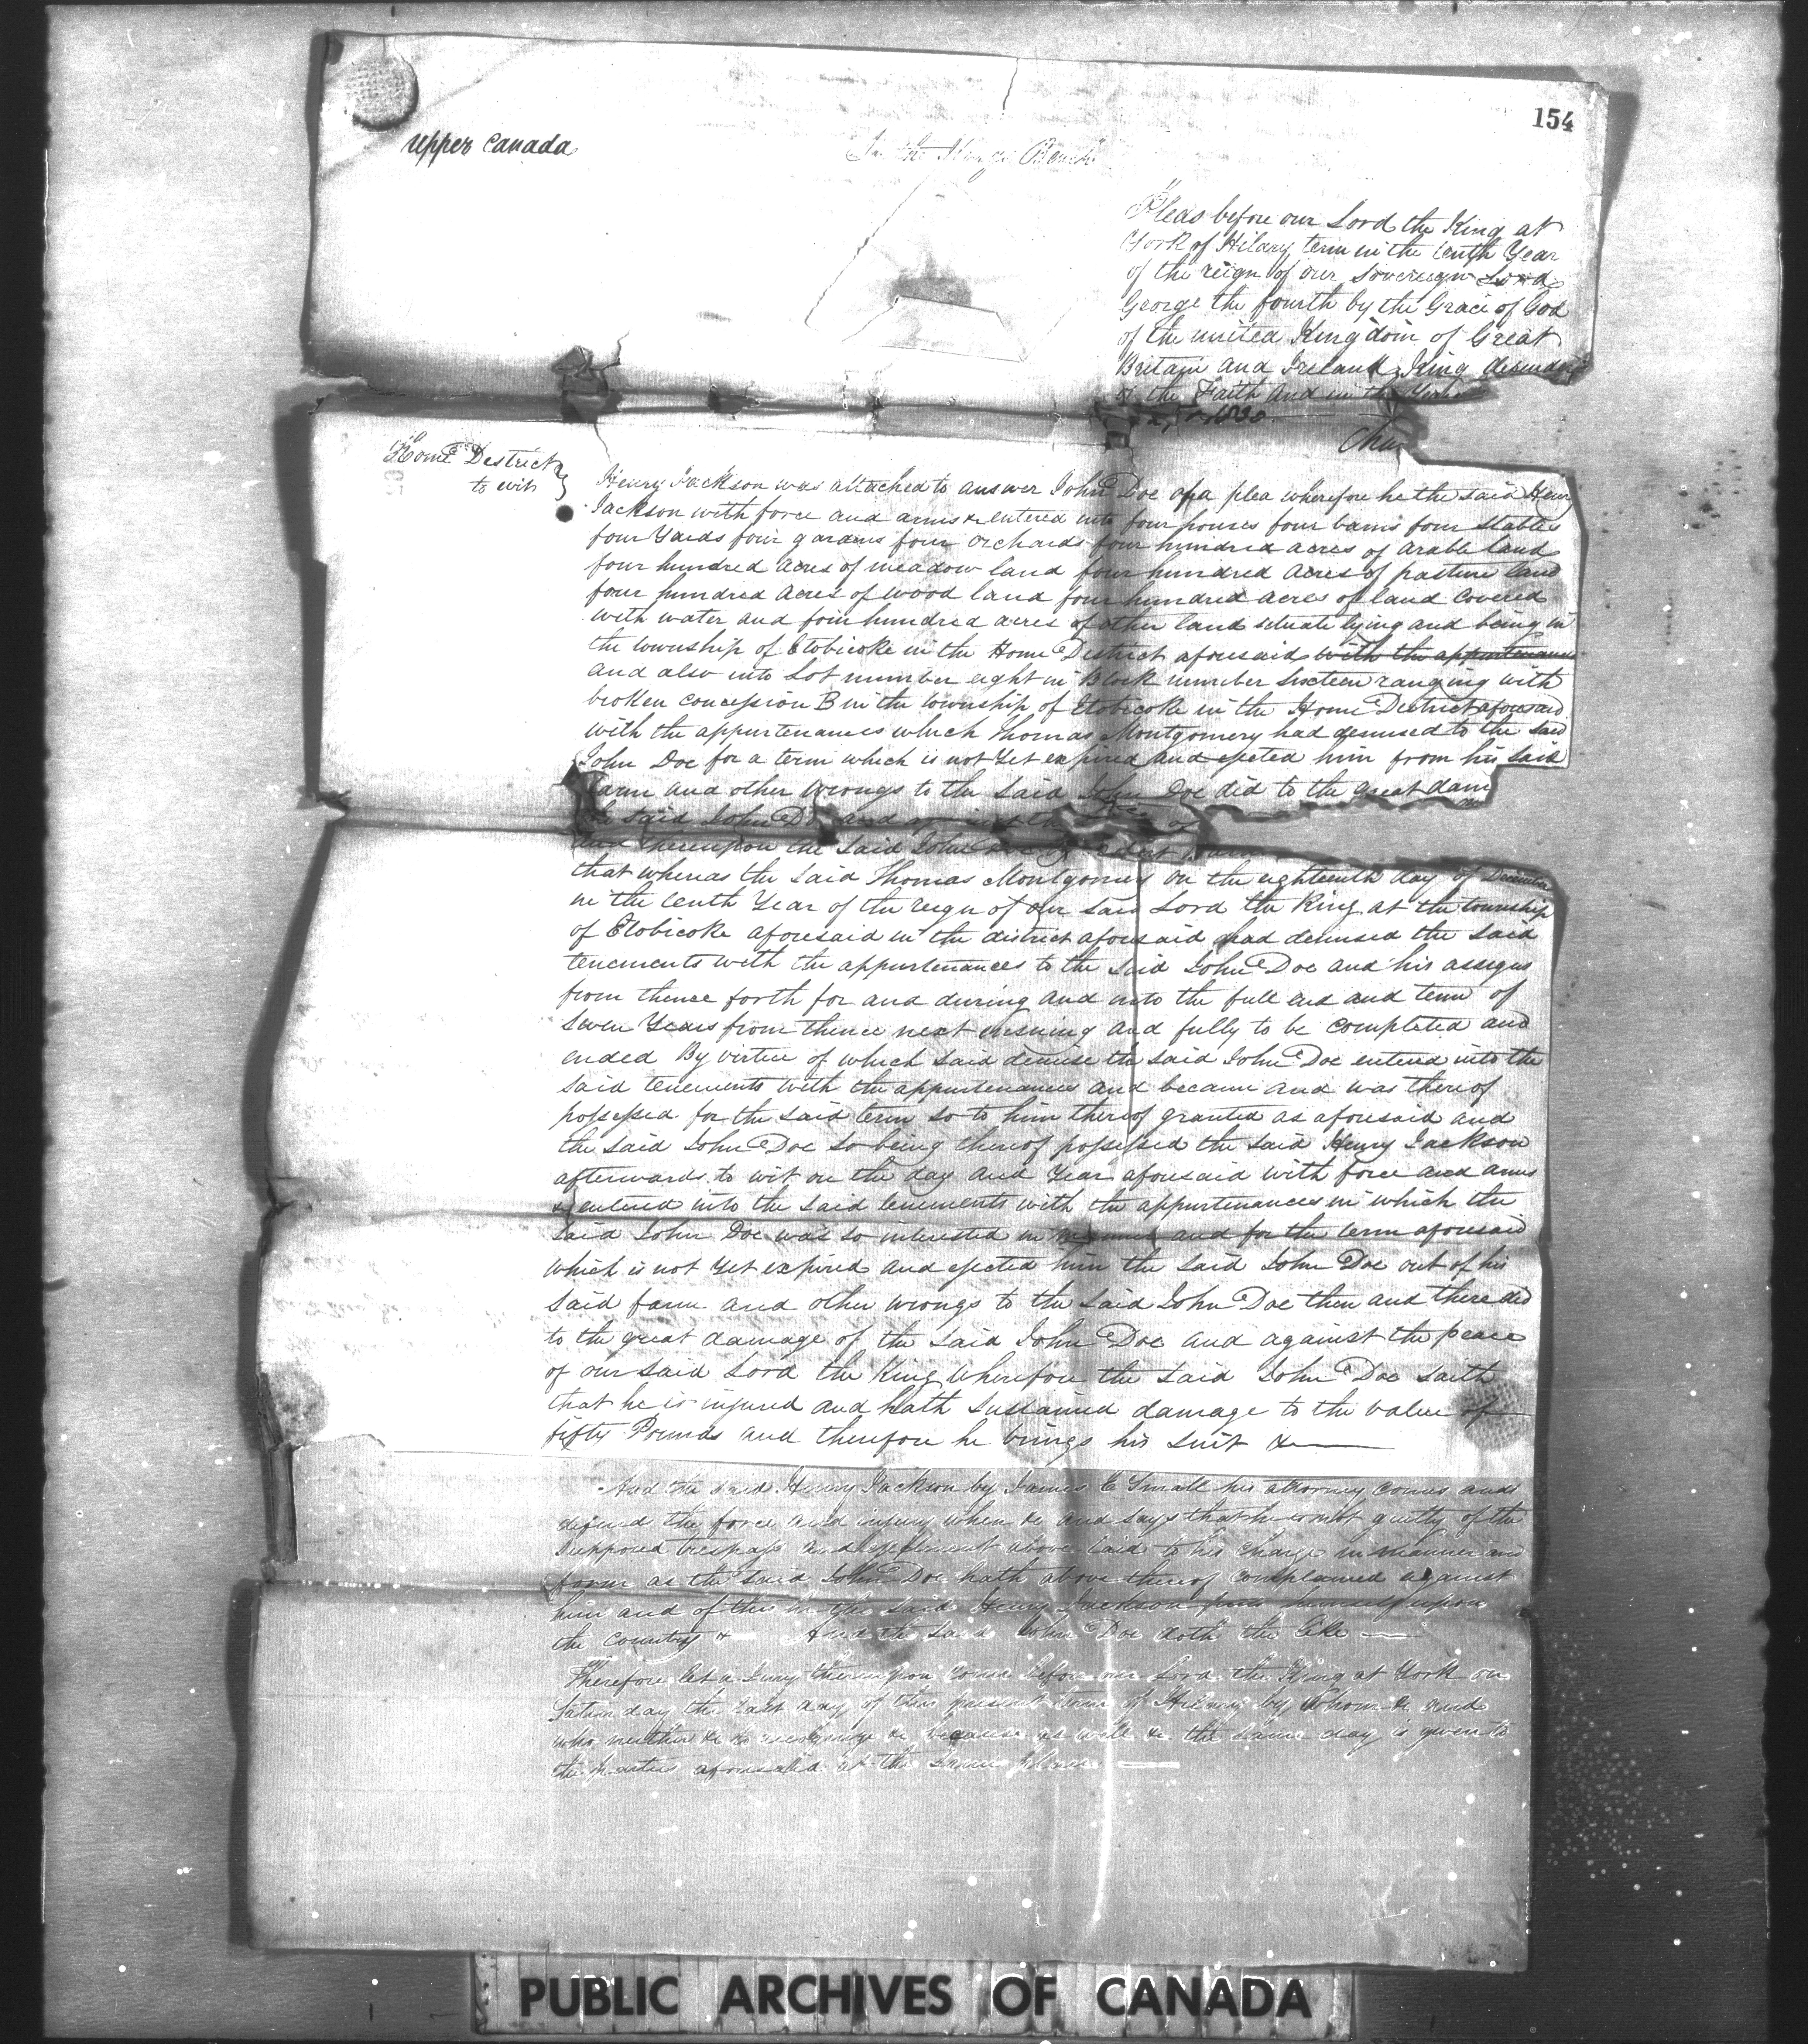 154
Upper Canada
In the Kings Bench
Pleas before our Lord the King at
York of Hilary term in the tenth Year
of the reign of our Sovereign Lord
George the fourth by the Grace of God
of the united Kingdom of Great
Britain and Ireland King
of the Faith and in the Year
1830.
Home District
to wit
Henry Jackson was attached to answer John Doe of a plea wherefore he the said Henry
Jackson with force and arms &c entered into four houses four barns four stables
four Yards four gardens four orchards four hundred acres of arable land
four hundred acres of meadow land four hundred acres of pasture land
four hundred acres of wood land four hundred acres of land covered
with water and four hundred acres of other land situate lying and being in
the township of Etobicoke in the Home District aforesaid with the appurtenances
and also into Lot number eight in Block number Sixteen ranging with
broken concession B in the township of Etobicoke in the Home District aforesaid
with the appurtenances which Thomas Montgomery had demised to the said
John Doe for a term which is not Yet expired and ejected him from his said
Farm and other wrongs to the said John Doe did to the great dam
said John Doe and against the
and thereupon the said John Doe by
that whereas the said Thomas Montgomery on the eighteenth day of December
in the tenth Year of the reign of our said Lord the King at the township
of Etobicoke aforesaid in the district aforesaid had demised the said
tenements with the appurtenances to the said John Doe and his assigns
from thence forth for and during and unto the full end and term of
Seven Years from thence next ensuing and fully to be completed and
ended By virtue of which said demise the said John Doe entered into the
said tenements with the appurtenances and became and was thereof
possessed for the said term so to him thereof granted as aforesaid and
the said John Doe so being thereof possessed the said Henry Jackson
afterwards to wit on the day and Year aforesaid with force and arms
&c entered into the said tenements with the appurtenances in which the
said John Doe was so interested in manner and for the term aforesaid
which is not Yet expired and ejected him the said John Doe out of his
said farm and other wrongs to the said John Doe then and there did
to the great damage of the said John Doe and against the peace
of our said Lord the King Wherefore the said John Doe saith
that he is injured and hath sustained damage to the value of
fifty Pounds and therefore he brings his suit &c
And the said Henry Jackson by James E Small his attorney comes and
defend the force and injury when &c and says that he is not guilty of the
supposed trespass and ejectment above laid to his charge in manner and
form as the said John Doe hath above thereof complained against
him and of this he the said Henry Jackson puts himself upon
the Country &c And the said John Doe doth the like
Therefore let a Jury thereupon come before our Lord the King at York on
Saturday the last day of this present term of Hilary by whom &c and
who neither &c to recognize &c because as well &c the same day is given to
the parties aforesaid at the same place
PUBLIC ARCHIVES OF CANADA